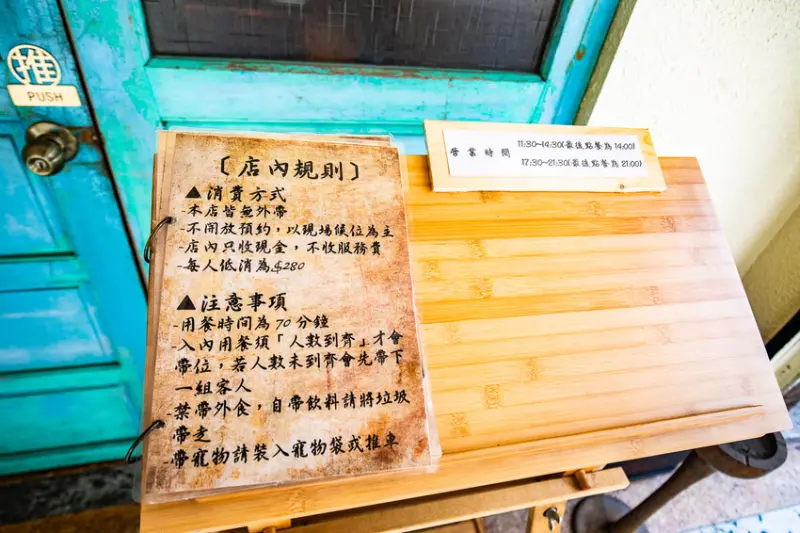 推
PUSH
〔店內規則〕
▲消費方式
-本店皆無外帶
-不開放預約，以現場候位為主
-店內只收現金，不收服務費
-每人低消為$280
▲注意事項
-用餐時間為70分鐘
-入內用餐須「人數到齊」才會
帶位，若人數未到齊會先帶下
一組客人
-禁帶外食，自帶飲料請將垃圾
帶走
-帶寵物請裝入寵物袋或推車
營業時間
11:30~14:30(最後點餐為 14:00)
17:30~21:30(最後點餐為 21:00)